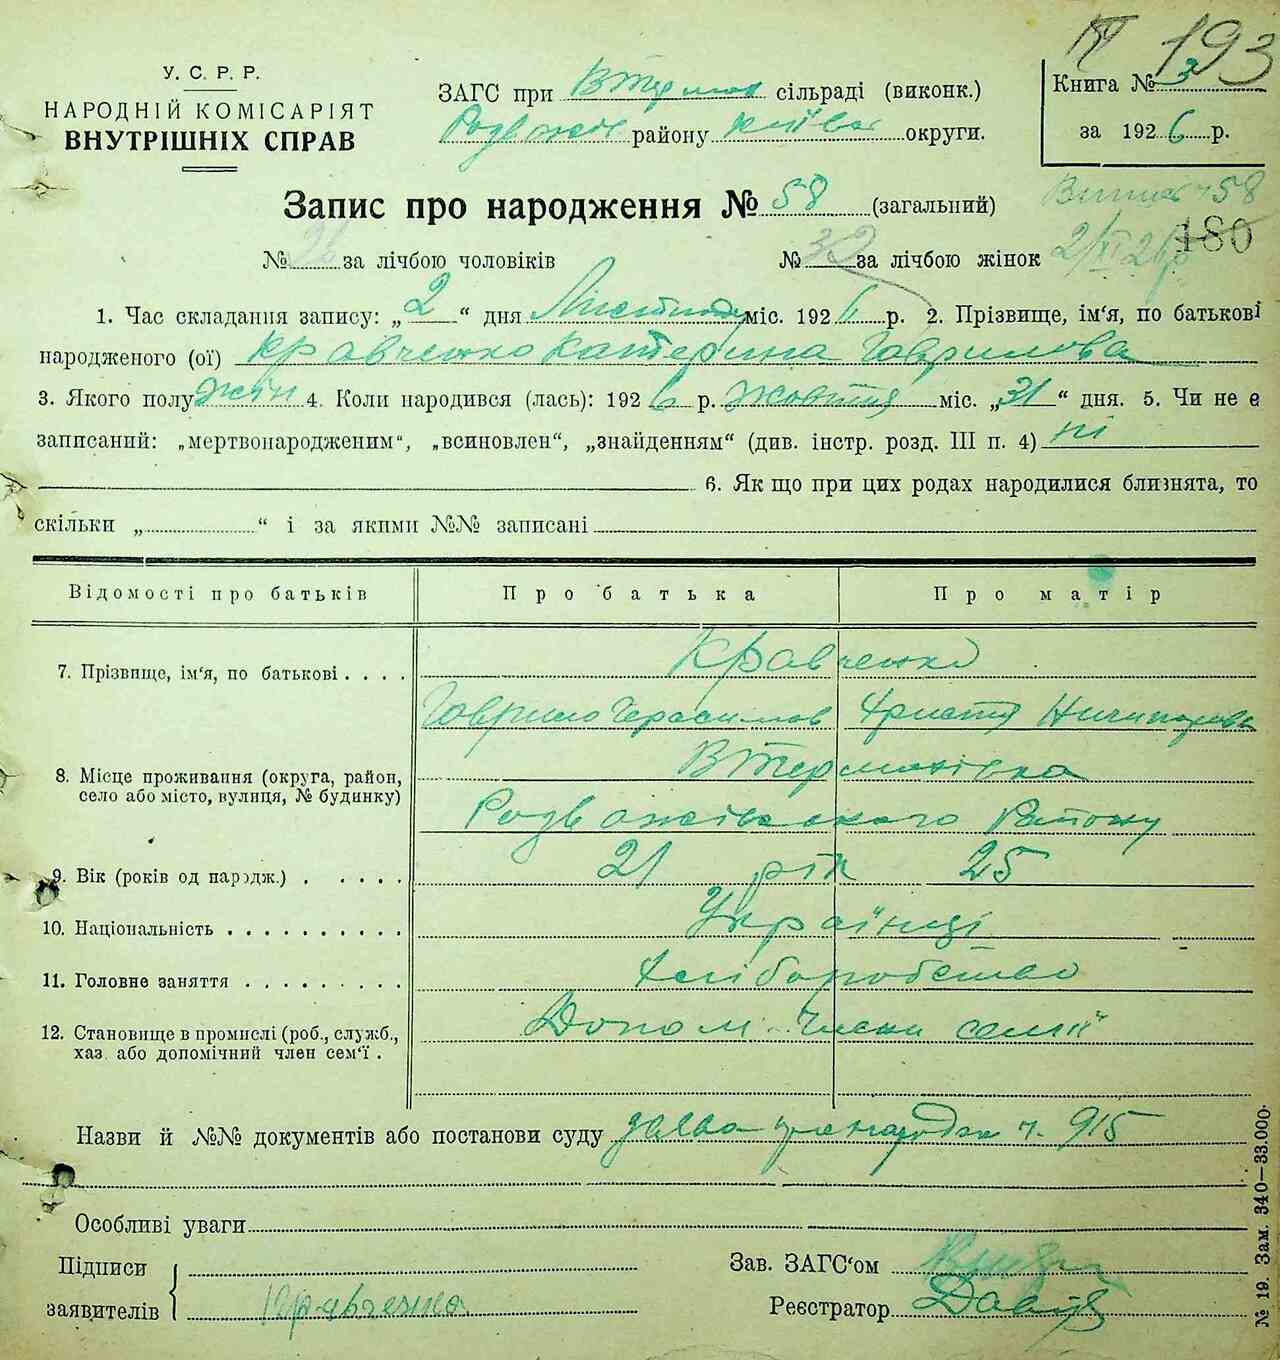 193
У. С. Р. Р.
НАРОДНІЙ КОМІСАРІЯТ
ВНУТРІШНІХ СПРАВ
ЗАГС при сільраді (виконк.)
району округи.
Книга № 3
за 1926 р.
Запис про народження № 58 (загальний)
58
180
№ за лічбою чоловіків № 32 за лічбою жінок
1. Час складання запису: „2“ дня Листопаду міс. 1926 р. 2. Прізвище, ім'я, по батькові
народженого (ої) Кравченко Катерина Гаврилова
3. Якого полу жін 4. Коли народився (лась): 1926 р. жовтня міс. „31“ дня. 5. Чи не є
записаний: „мертвонародженим“, „всиновлен“, „знайденням“ (див. інстр. розд. III п. 4) ні
6. Як що при цих родах народилися близнята, то
скільки „ “ і за якими №№ записані
Відомості про батьків Про батька Про матір
7. Прізвище, ім‘я, по батькові . . . . Кравченко
Гаврило Герасимов Христя Ничипорова
8. Місце проживання (округа, район,
село або місто, вулиця, № будинку)
Термахівка
району
9. Вік (років од народж.) . . . . . 21 рік 25
10. Національність . . . . . . . . . . Українці
11. Головне заняття . . . . . . . . . Хліборобство
12. Становище в промислі (роб., служб.,
хаз. або допомічний член сем‘ї . Допом. члени семії
Назви й №№ документів або постанови суду ч. 915
Особливі уваги
Підписи
заявителів Кравченко
Зав. ЗАГС‘ом
Реєстратор
№ 19. Зам. 340—33.000.